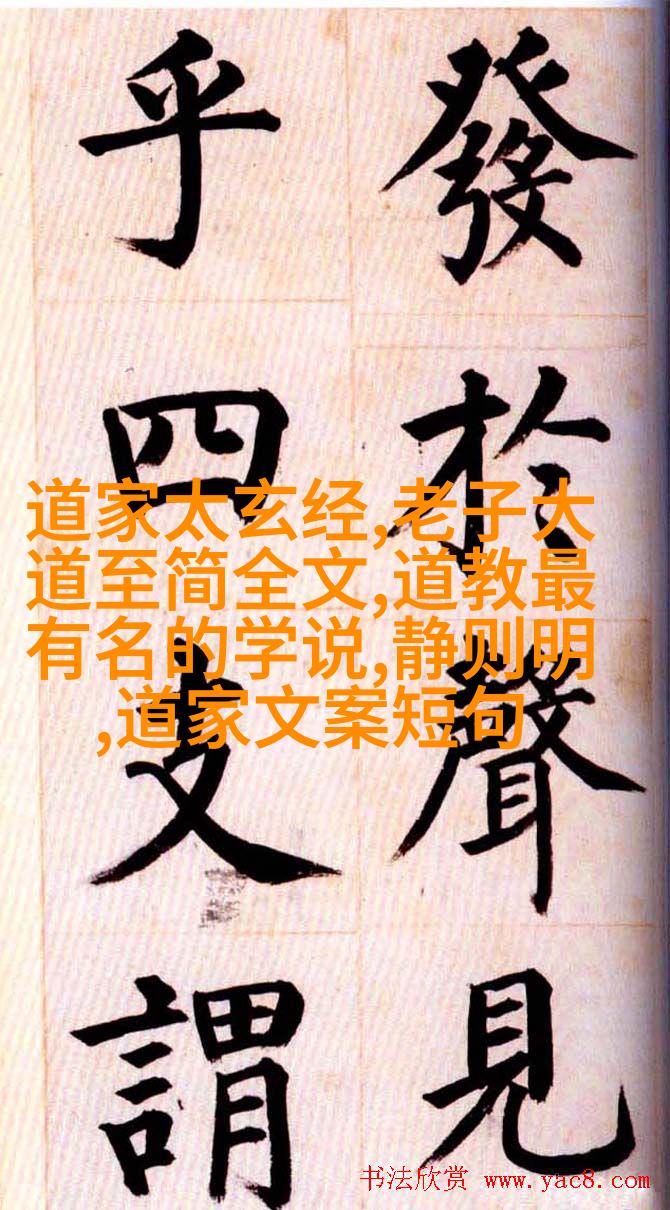 發於聲見
乎四支謂
道家太玄经,老子大
道至简全文,道教最
有名的学说,静则明
,道家文案短句
书法欣赏 www.yac8.com